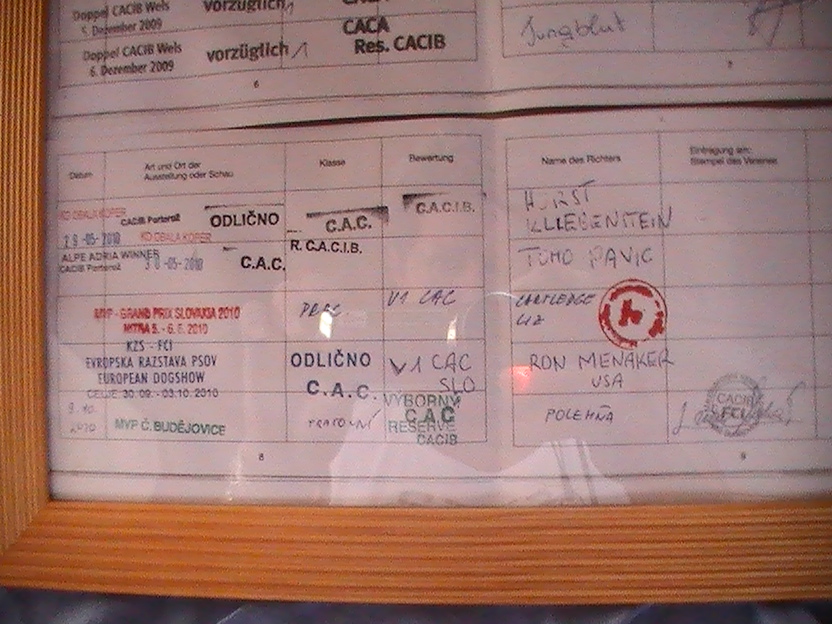 Doppel CACIB Wels vorzüglich 1
5. Dezember 2009
CACA
Doppel CACIB Wels vorzüglich 1 Res. CACIB
6. Dezember 2009
6
Jungblut
7
Datum Art und Ort der Ausstellung oder Schau Klasse Bewertung
KD OBALA KOPER CACIB Portorož ODLIČNO C.A.C. C.A.C.I.B.
29-05-2010 KD OBALA KOPER R.C.A.C.I.B.
ALPE ADRIA WINNER
CACIB Portorož 30-05-2010 C.A.C.
MVP - GRAND PRIX SLOVAKIA 2010 V1 CAC
NITRA 5. - 6. 6. 2010
KZS - FCI
EVROPSKA RAZSTAVA PSOV ODLIČNO V1 CAC
EUROPEAN DOGSHOW C.A.C. SLO
CELJE 30.09.-03.10.2010
9.10. VÝBORNÝ
2010 MVP Č. BUDĚJOVICE CAC
RESERVE
CACIB
8
Name des Richters Eintragung am:
Stempel des Vereines
HORST
KLIEBENSTEIN
TOMO PAVIC
CARTLEDGE
LIZ
RON MENAKER
USA
CACIB
FCI
9